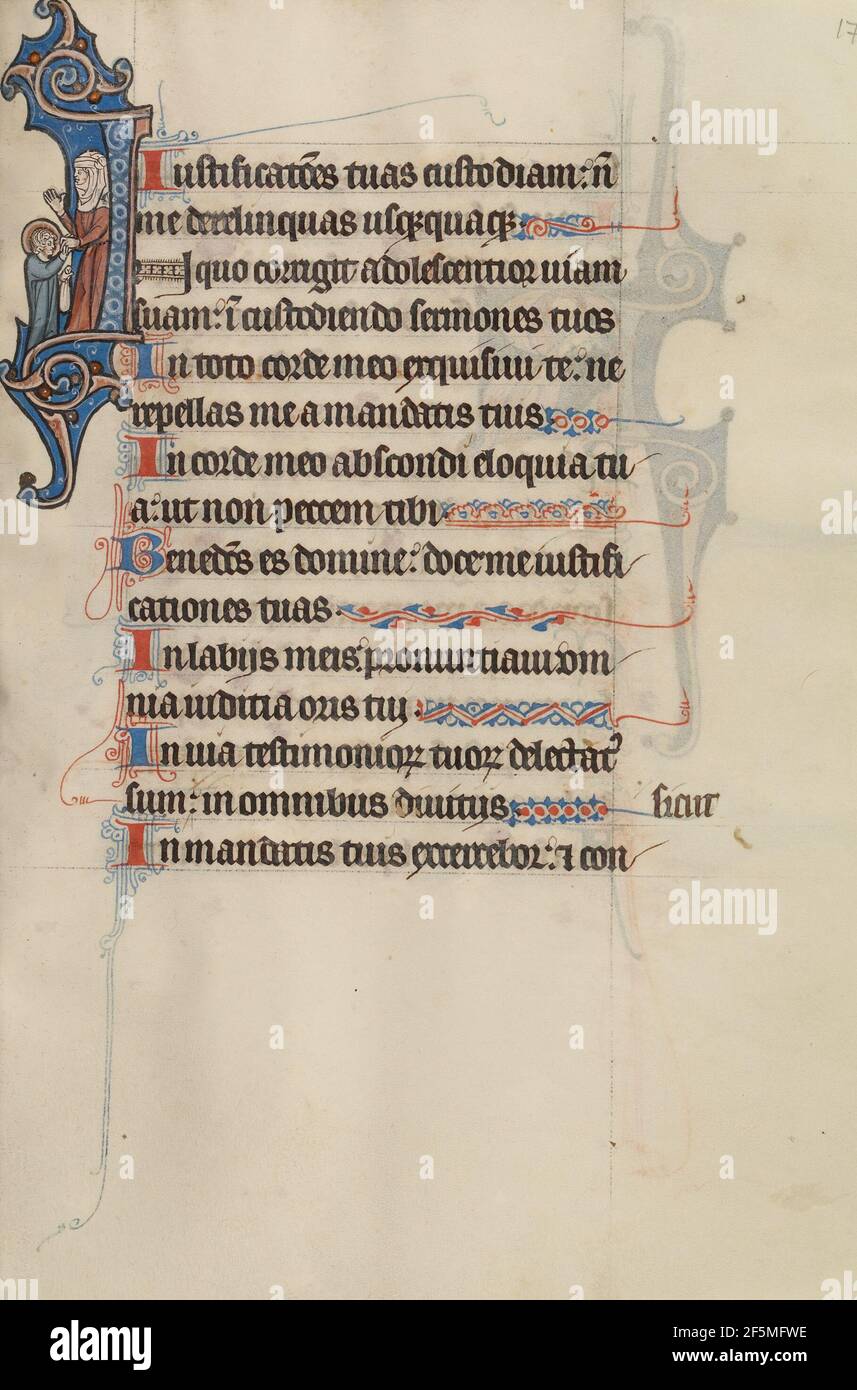 17
Iustificatōes tuas custodiam: n̄
me derelinquas usq̄quaq̄
In quo corrigit adolescentior uiam
suam: ī custodiendo sermones tuos
In toto corde meo exquisiui te: ne
repellas me a mandatis tuis
In corde meo abscondi eloquia tu
a: ut non peccem tibi
Benedc̄s es domine: doce me iustifi
cationes tuas
In labijs meis: pronuntiaui om
nia iuditia oris tui
In uia testimonioꝝ tuoꝝ delectatꝰ
sum: in omnibus diuitiis sicut
In mandatis tuis exercebor: ⁊ con
a alamy
a alamy
alamy
Image ID: 2F5MFWE
www.alamy.com